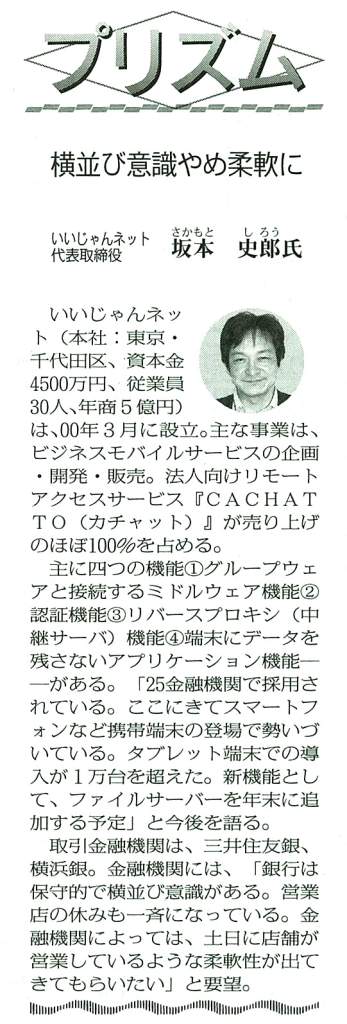 プリズム
横並び意識やめ柔軟に
いいじゃんネット
代表取締役
さかもと しろう
坂本 史郎氏
いいじゃんネッ
ト（本社：東京・
千代田区、資本金
4500万円、従業員
30人、年商５億円）
は、00年３月に設立。主な事業は、
ビジネスモバイルサービスの企画
・開発・販売。法人向けリモート
アクセスサービス『ＣＡＣＨＡＴ
ＴＯ（カチャット）』が売り上げ
のほぼ100％を占める。
主に四つの機能①グループウェ
アと接続するミドルウェア機能②
認証機能③リバースプロキシ（中
継サーバ）機能④端末にデータを
残さないアプリケーション機能―
―がある。「25金融機関で採用さ
れている。ここにきてスマートフ
ォンなど携帯端末の登場で勢いづ
いている。タブレット端末での導
入が１万台を超えた。新機能とし
て、ファイルサーバーを年末に追
加する予定」と今後を語る。
取引金融機関は、三井住友銀、
横浜銀。金融機関には、「銀行は
保守的で横並び意識がある。営業
店の休みも一斉になっている。金
融機関によっては、土日に店舗が
営業しているような柔軟性が出て
きてもらいたい」と要望。